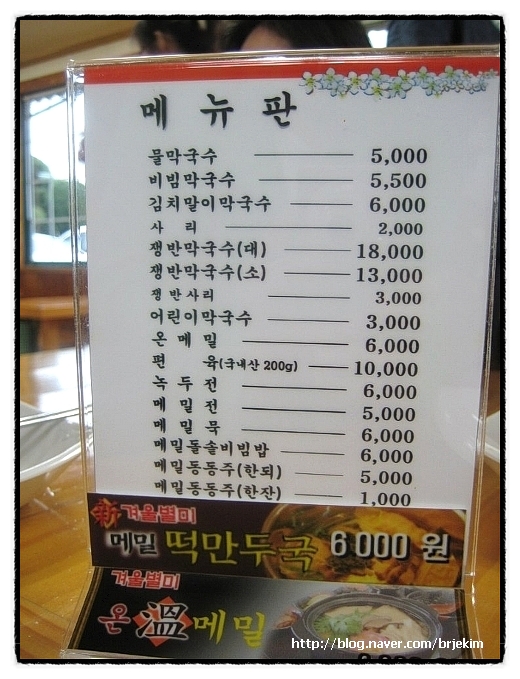 메뉴판
물막국수 5,000
비빔막국수 5,500
김치말이막국수 6,000
사 리 2,000
쟁반막국수(대) 18,000
쟁반막국수(소) 13,000
쟁반사리 3,000
어린이막국수 3,000
온 메 밀 6,000
편 육(국내산 200g) 10,000
녹 두 전 6,000
메 밀 전 5,000
메 밀 묵 6,000
메밀돌솥비빔밥 6,000
메밀동동주(한되) 5,000
메밀동동주(한잔) 1,000
新 겨울별미
메밀 떡만두국 6000 원
겨울별미
온 溫 메밀
http://blog.naver.com/brjekim